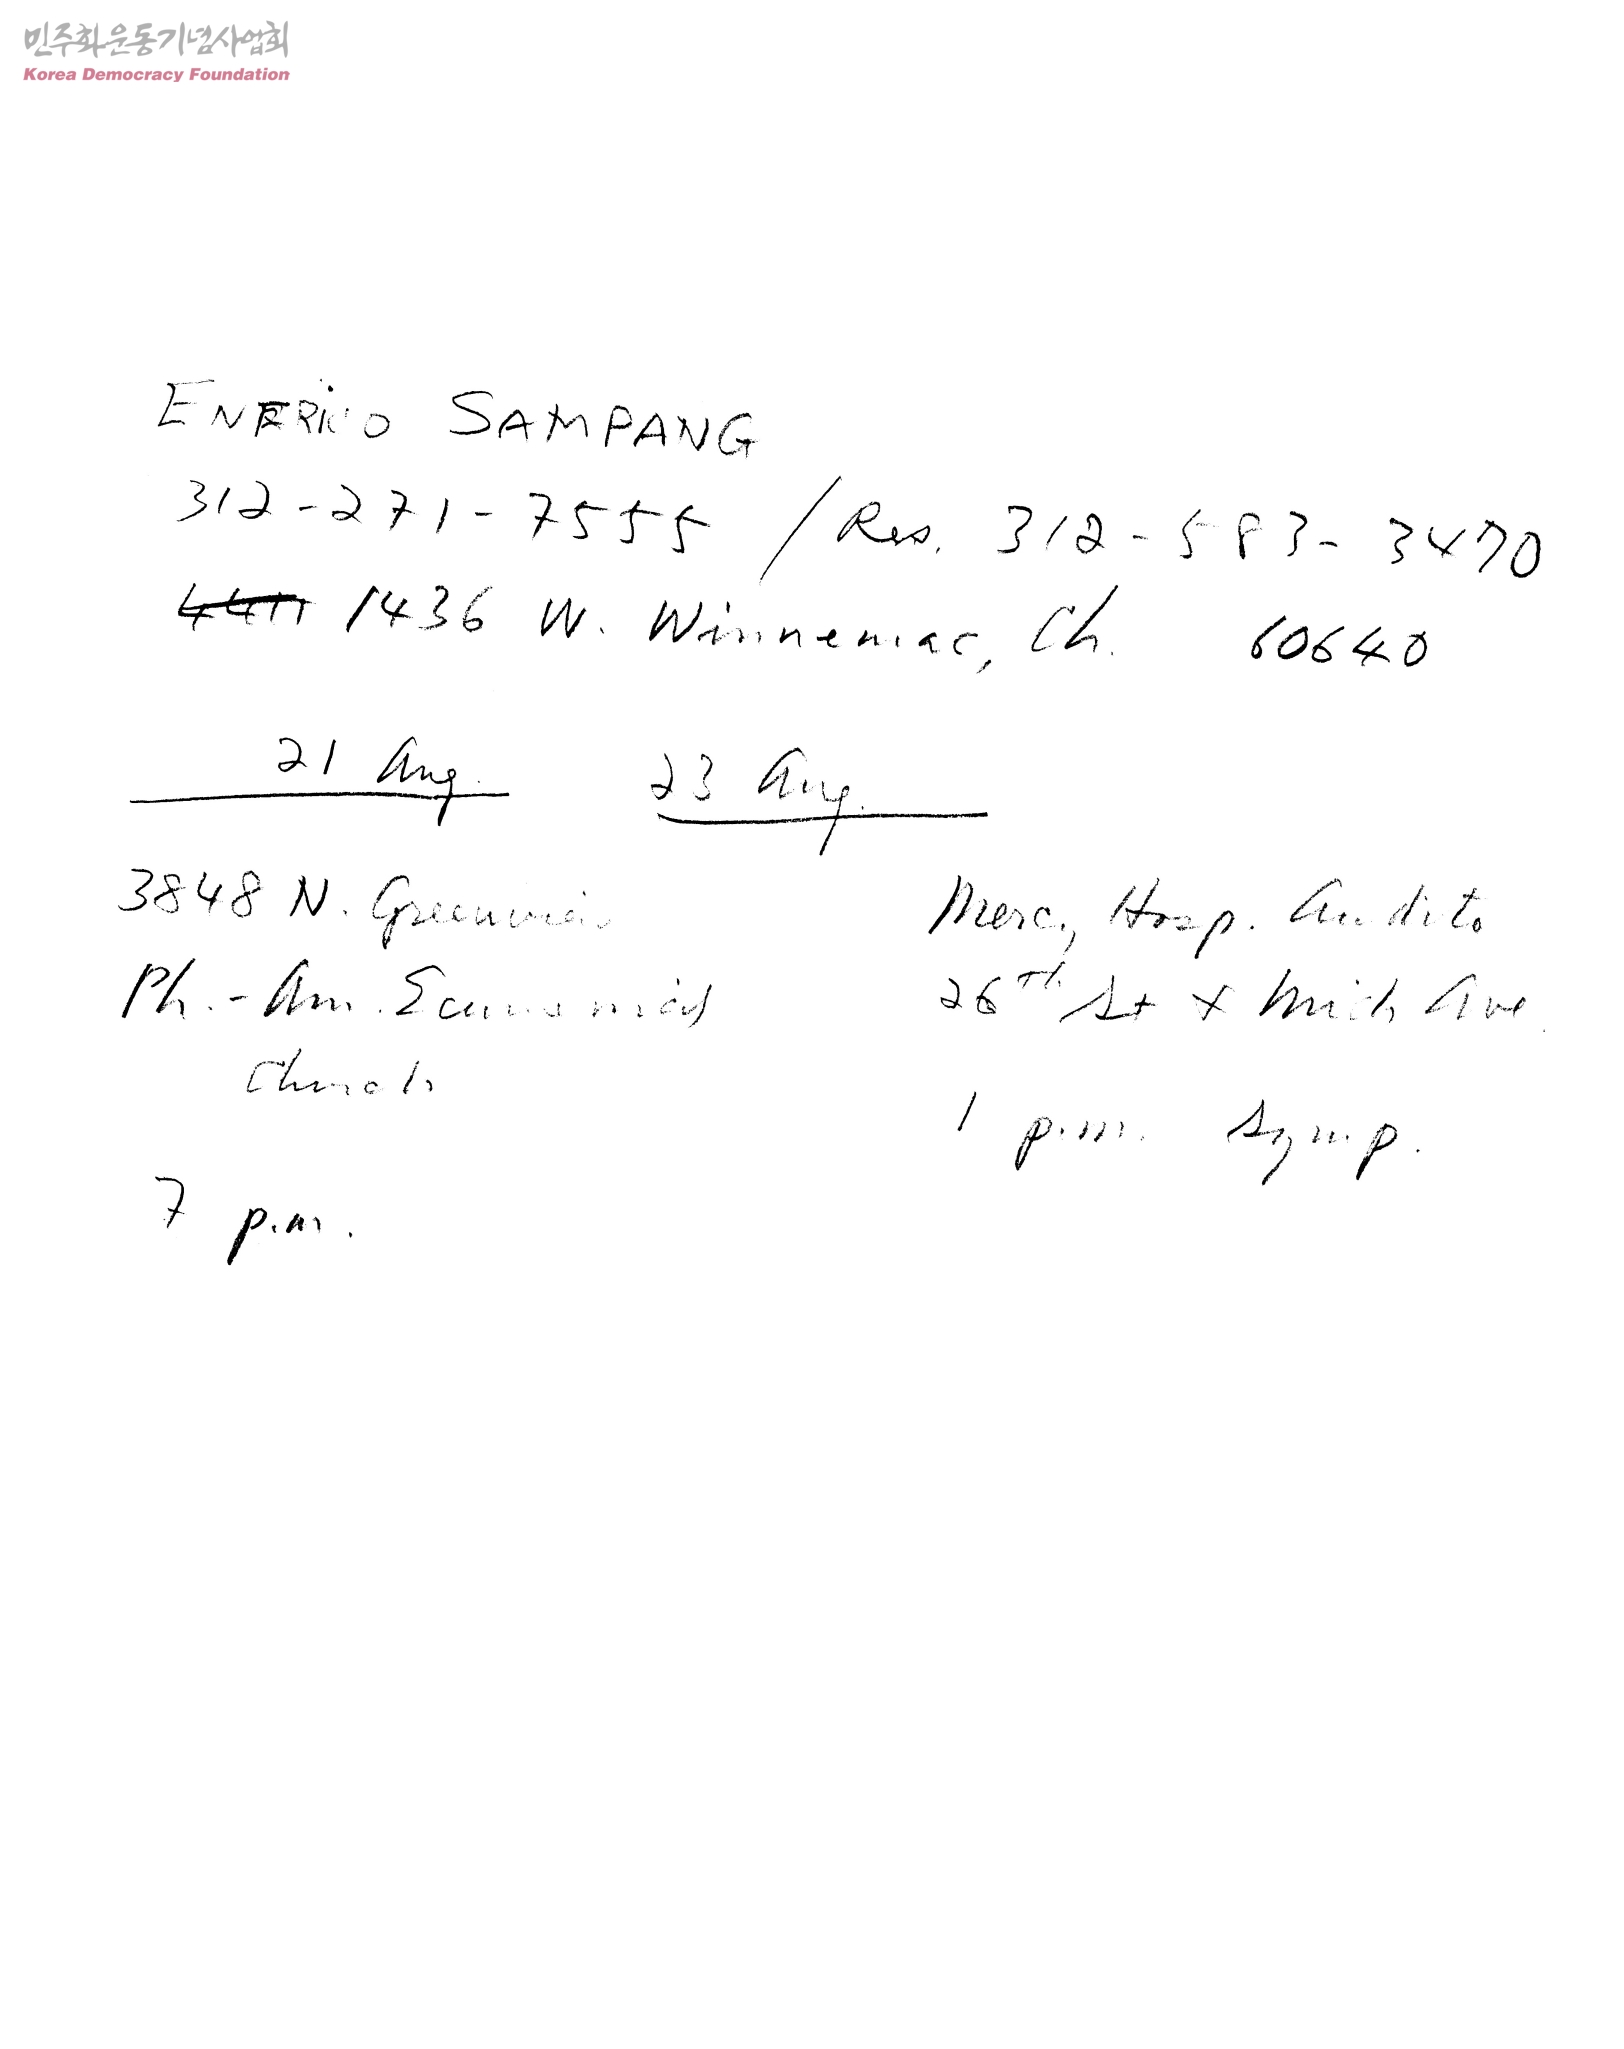 민주화운동기념사업회
Korea Democracy Foundation
ENERICO SAMPANG
312-271-7555 / Res. 312-583-3470
1436 W. Winnemac, Ch. 60640
21 Aug.
23 Aug.
3848 N. Greenview
Ph.-Am. Ecumenical
Church
7 p.m.
Mercy Hosp. Audito
26th St & Mich Ave.
1 p.m. Symp.